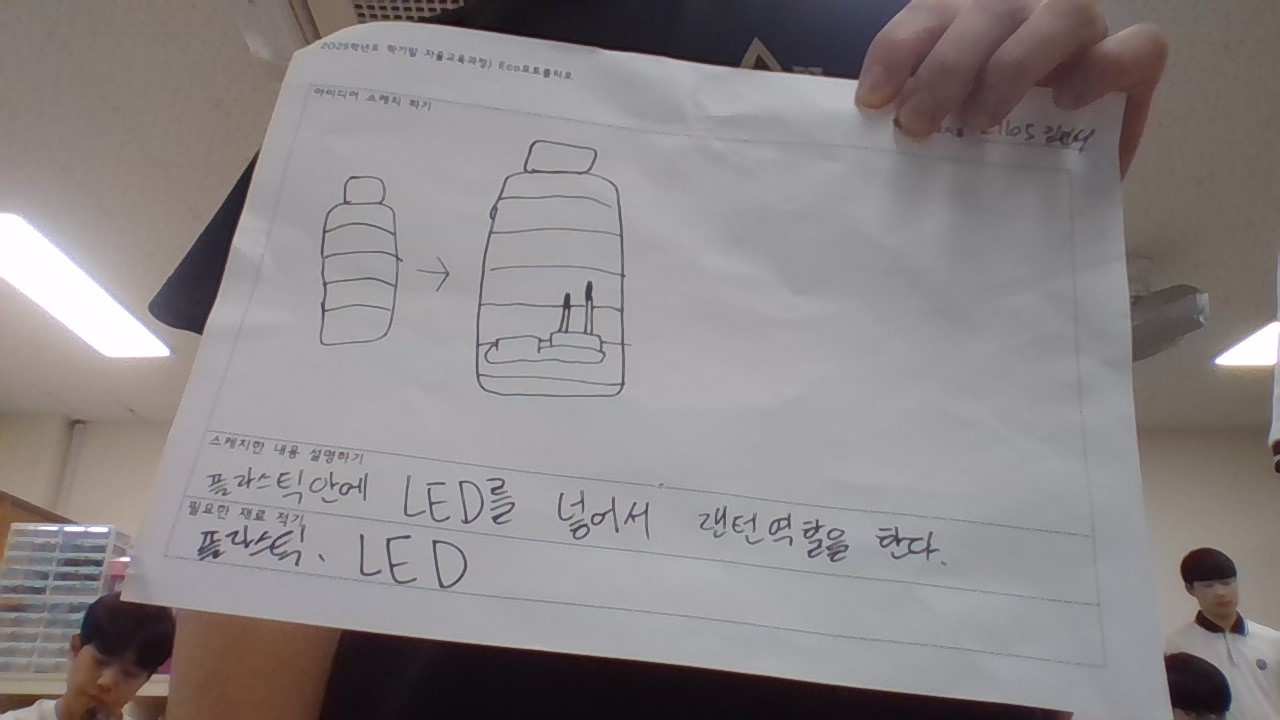 2025학년도 학기말 자율교육과정) Eco포트폴리오
아이디어 스케치 하기
스케치한 내용 설명하기
플라스틱안에 LED를 넣어서 랜턴역할을 한다.
필요한 재료 적기
플라스틱、 LED